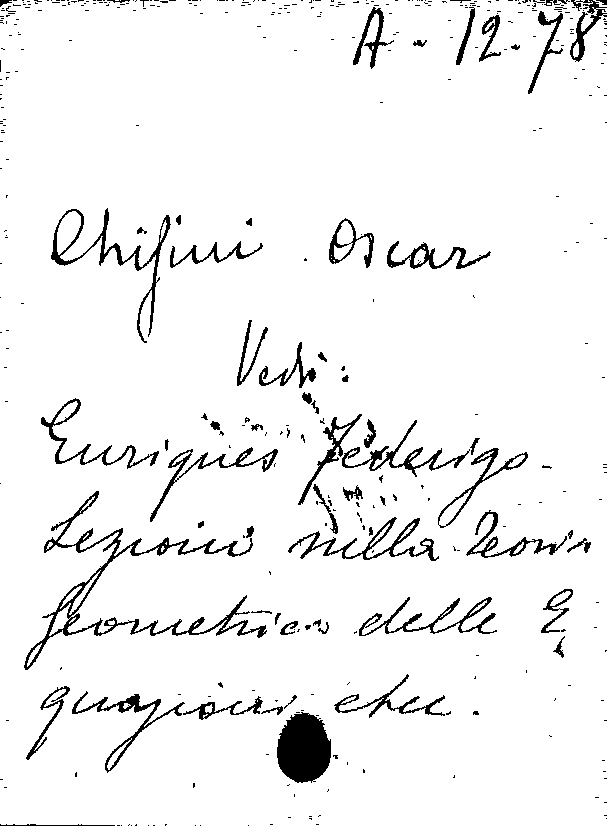 A-12-78
Chisini Oscar
Vedi:
Enriques Federigo-
Lezioni sulla Teoria
geometrica delle E
quazioni etcc.